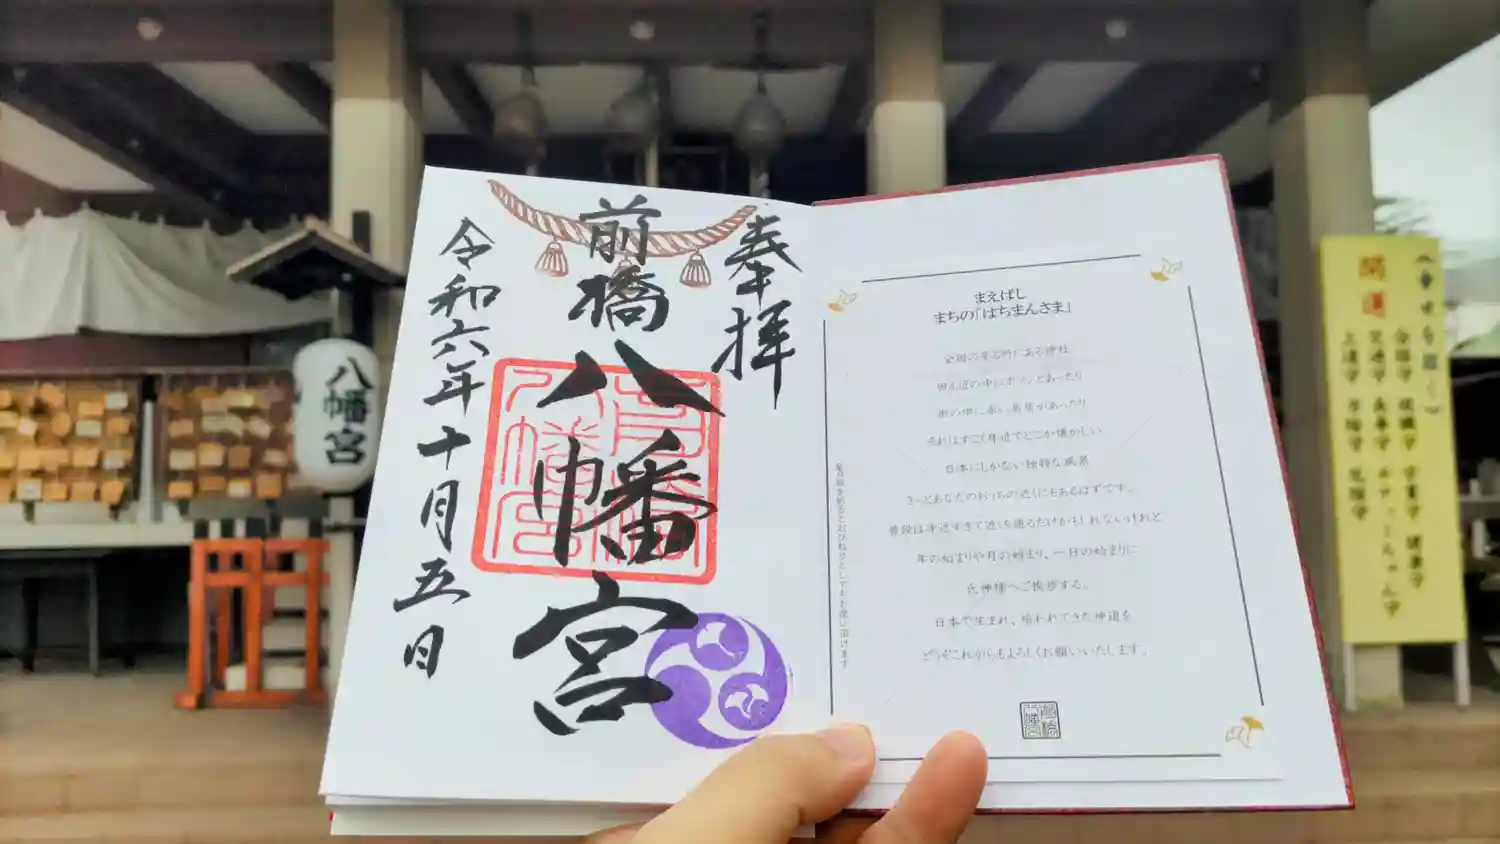 奉拝
前橋八幡宮
令和六年十月五日
まえばし
まちの「はちまんさま」
全国の至る所にある神社
田んぼの中にポツンとあったり
街の中に赤い鳥居があったり
それはすごく身近でどこか懐かしい
日本にしかない独特な風景
きっとあなたのおうちの近くにもあるはずです。
普段は身近すぎて近くを通るだけかもしれないけれど
年の始まりや月の始まり、一日の始まりに
氏神様へご挨拶する。
日本で生まれ、培われてきた神道を
どうぞこれからもよろしくお願いいたします。
八幡宮
開運
合格守
交通守